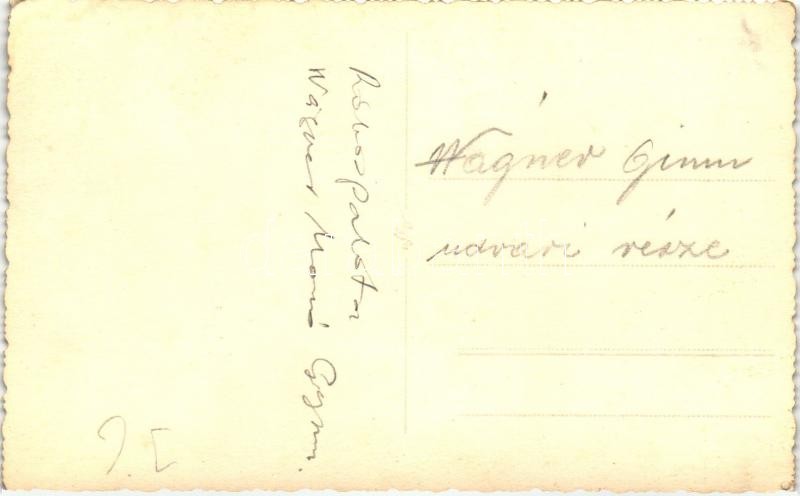 Rákospalota
Wágner Manó Gymn.
Wagner Gimn
udvari része